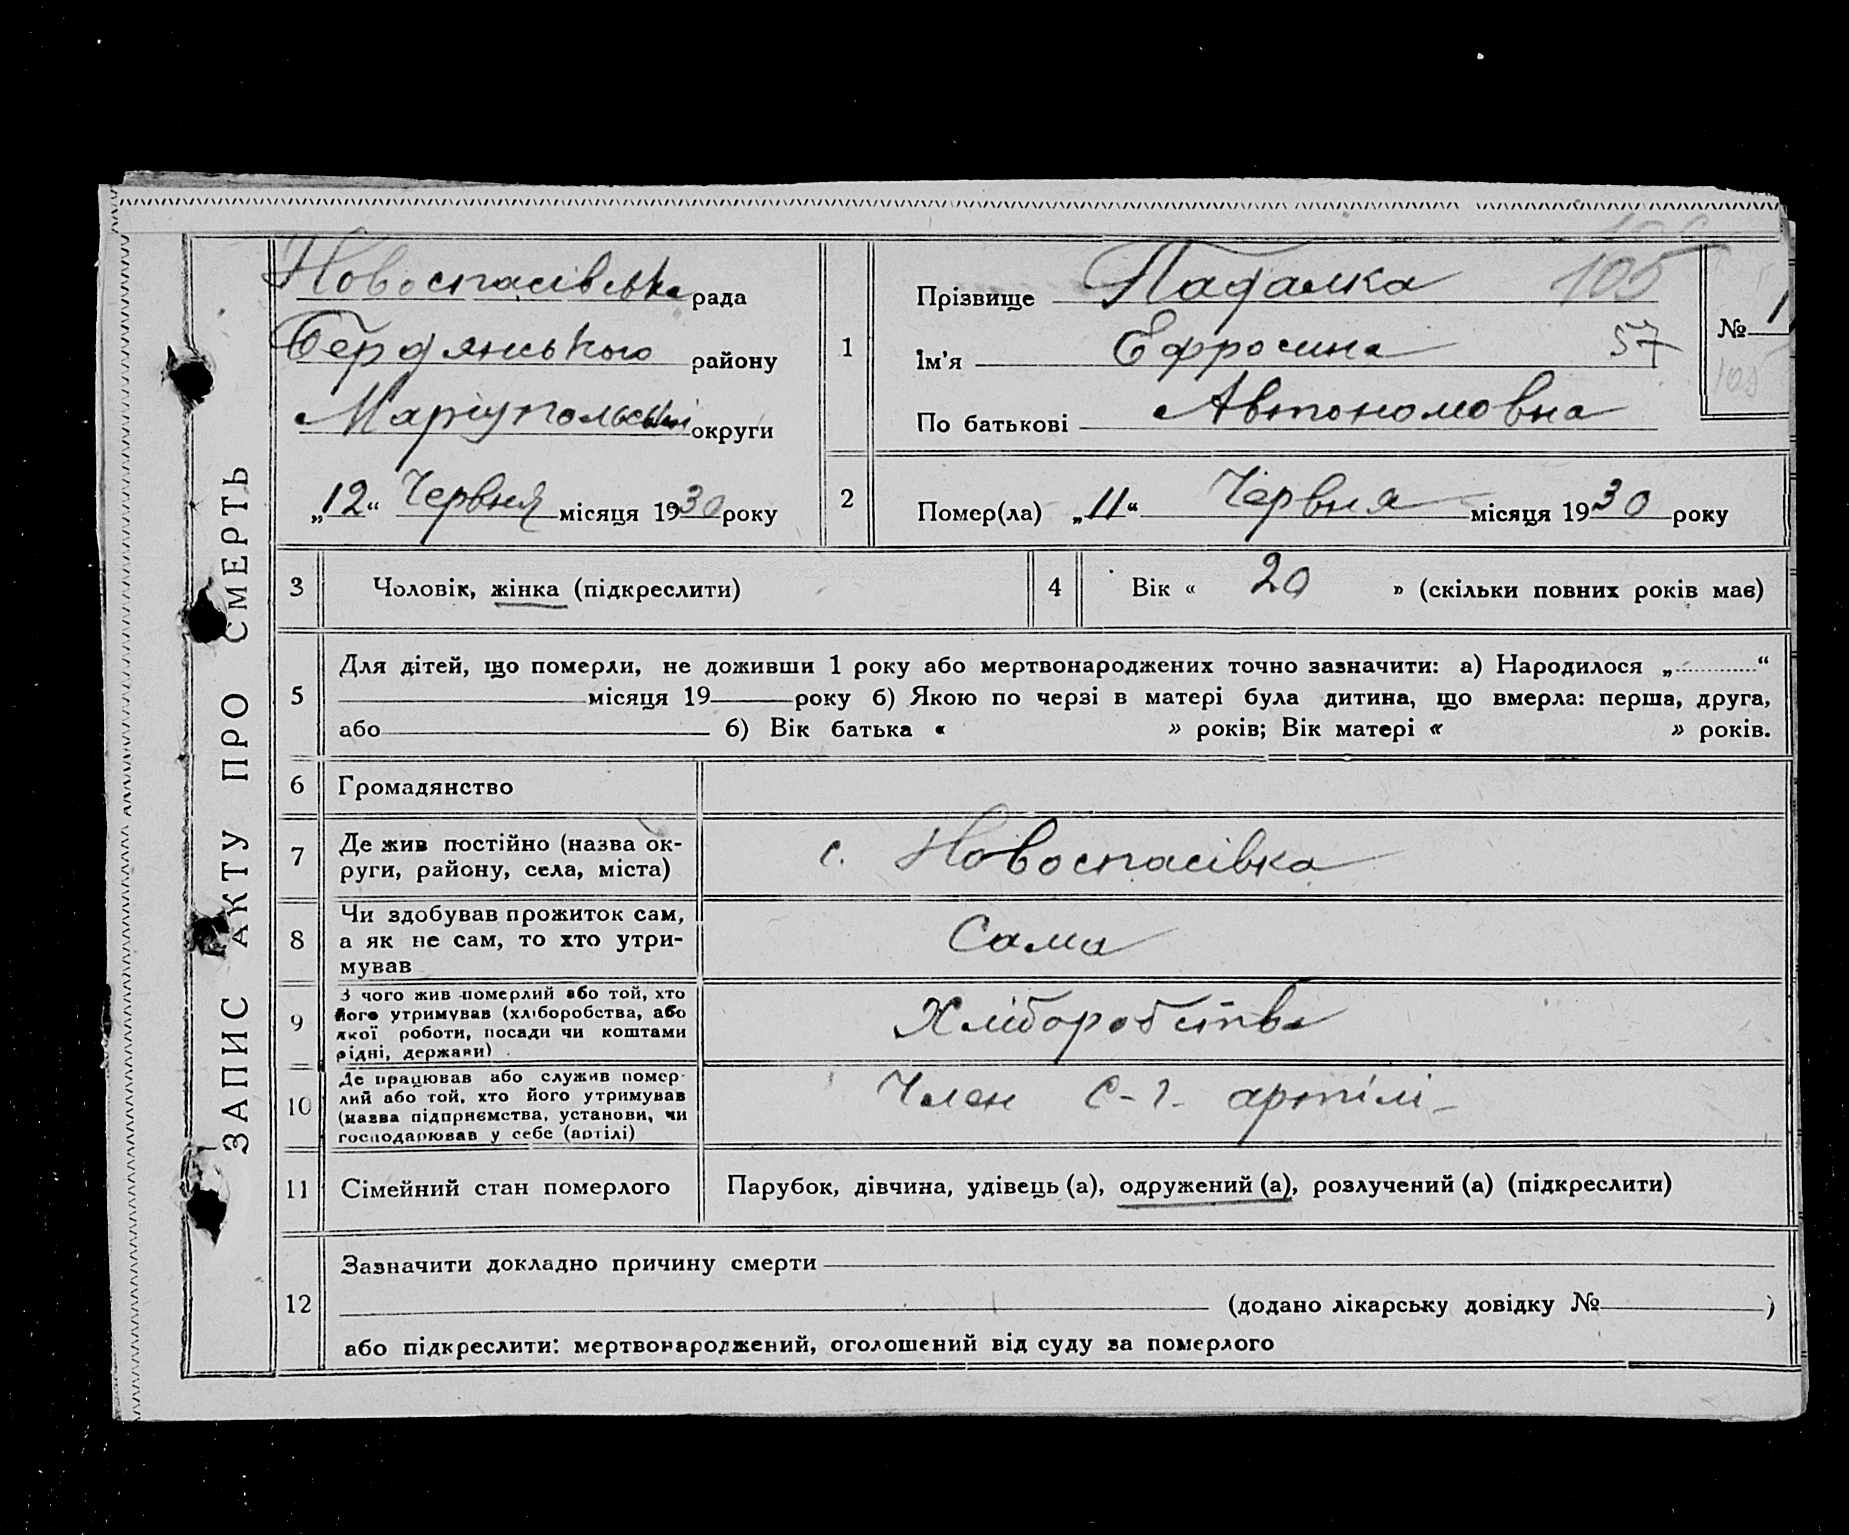 ЗАПИС АКТУ ПРО СМЕРТЬ
Новоспасівська рада
Бердянського району
Маріупольської округи
„12“ Червня місяця 1930 року
1
Прізвище Падалка
105
Ім'я Ефросина
57
По батькові Автономовна
№ 1
105
2
Помер(ла) „11“ Червня місяця 1930 року
3 Чоловік, жінка (підкреслити)
4 Вік « 20 » (скільки повних років має)
5 Для дітей, що померли, не доживши 1 року або мертвонароджених точно зазначити: а) Народилося „............“
місяця 19 року б) Якою по черзі в матері була дитина, що вмерла: перша, друга,
або б) Вік батька « » років; Вік матері « » років.
6 Громадянство
7 Де жив постійно (назва ок-
руги, району, села, міста)
с. Новоспасівка
8 Чи здобував прожиток сам,
а як не сам, то хто утри-
мував
Сама
9 З чого жив померлий або той, хто
його утримував (хліборобства, або
якої роботи, посади чи коштами
рідні, держави)
Хліборобства
10 Де працював або служив помер-
лий або той, хто його утримував
(назва підприємства, установи, чи
господарював у себе (артілі)
Член с-г. артілі
11 Сімейний стан померлого
Парубок, дівчина, удівець (а), одружений (а), розлучений (а) (підкреслити)
12 Зазначити докладно причину смерти
(додано лікарську довідку № )
або підкреслити: мертвонароджений, оголошений від суду за померлого